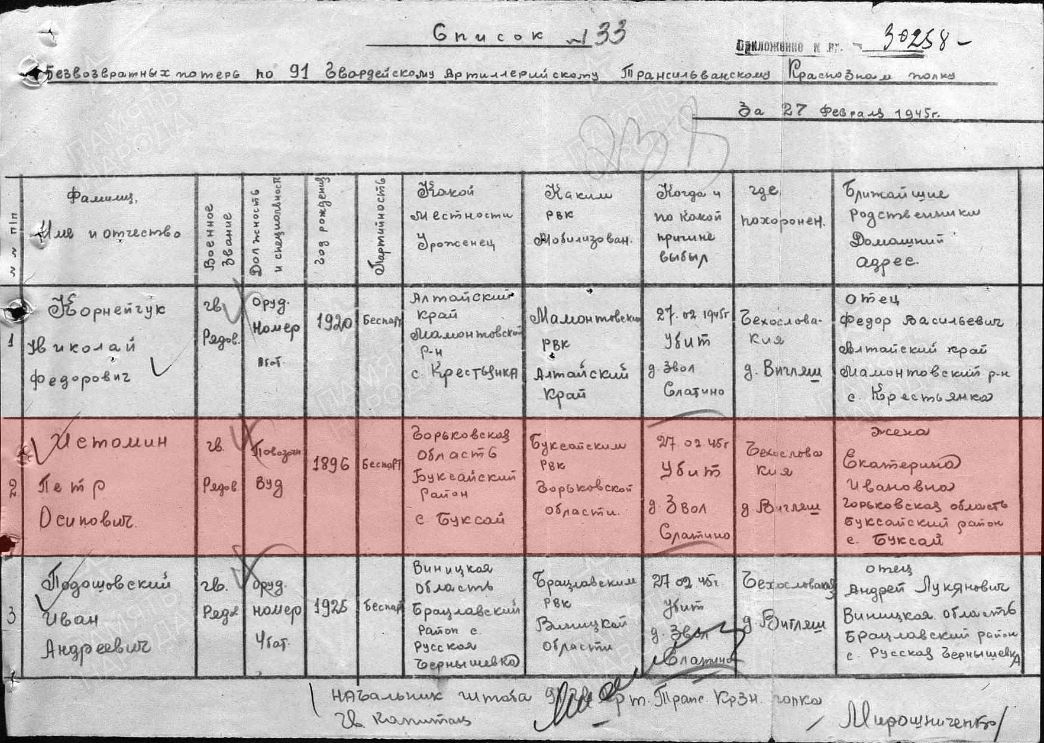 Список №133
Приложение к вх. № 30258-
Безвозвратных потерь по 91 Гвардейскому Артиллерийскому Трансильванскому Краснознам полку
За 27 Февраля 1945г.
№ № п/п
Фамилия,
Имя и отчество
Военное
Звание
Должность
и специальность
Год рождения
Партийность
Какой
Местности
Уроженец
Каким
РВК
Мобилизован.
Когда и
по какой
причине
выбыл
где
похоронен.
Ближайшие
родственники
Домашний
адрес.
1
Корнейчук
Николай
Федорович
гв.
Рядов.
Оруд.
Номер
1920
Беспарт
Алтайский
край
Мамонтовской
р-н
с. Крестьянка
Мамонтовским
РВК
Алтайский
Край
27.02 1945г
Убит
д. Звол
Слатино
Чехослова-
кия
д. Вигляш
отец
Федор Васильевич
Алтайский край
Мамонтовский р-н
с. Крестьянка
2
Истомин
Петр
Осипович.
гв.
Рядов
Повозоч
1896
Беспарт
Горьковская
Область
Буксайский
район
с Буксай
Буксайским
РВК
Горьковской
области.
27.02 45г
Убит
д. Звол
Слатино
Чехослова
кия
д. Вигляш
жена
Екатерина
Ивановна
Горьковская область
Буксайский район
с. Буксай
3
Подошовский
Иван
Андреевич
гв.
Рядов
Оруд.
номер
4бат.
1925
Беспарт
Виницкая
область
Брацлавский
район с.
Русская
Чернышевка
Брацлавским
РВК
Виницкой
области
27 02 45г.
Убит
д. Звол
Слатино
Чехословакия
д. Вигляш
отец
Андрей Лукянович
Виницкая область
Брацлавский район
с. Русская Чернышевка
Начальник штаба 91 гв. Арт. Транс. Крзн. полка
Гв Капитан
/Мирошниченко/
ПАМЯТЬ
НАРОДА